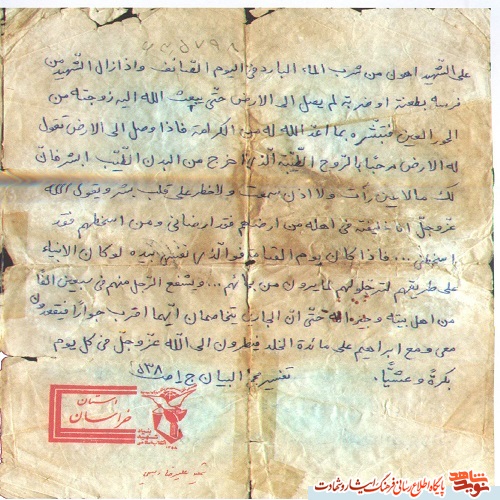 ۶۳۵۷۹۸
على الشهيد اهون من شرب الماء البارد فى اليوم القائف واذا زال الشهيد من
فرسه بطعنة او ضربة لم يصل الى الارض حتّى يبعث الله اليه زوجته من
الحور العين فتبشّره بما اعدّ الله له من الكرامة فاذا وصل الى الارض تقول
له الارض مرحبا بالرّوح الطّيّبة الّذى اخرج من البدن الطّيّب ابشر فانّ
لك مالا عين رأت ولا اذن سمعت ولا خطر على قلب بشر ويقول الله
عزّوجلّ انا خليفته فى اهله من ارضاهم فقد ارضانى ومن اسخطهم فقد
اسخطنى ... فاذا كان يوم القيامة فوالّذى نفسى بيده لو كان الانبياء
على طريقهم لترجلوا لهم لما يرون من بهائهم ... ويشفع الرّجل منهم فى سبعين الفا
من اهل بيته و جيرانه حتّى انّ الجارين يتخاصمان ايّهما اقرب جوارًا فيقعدون
معى ومع ابراهيم على مائدة الخلد فينظرون الى الله عزّوجلّ فى كلّ يوم
بكرةً و عشيًّا.
تفسير مجمع البيان ج ۱ ص ۵۳۸
استان
خراسان
بنیاد
شهید
انقلاب اسلامی
شهید علیرضا
نوید شاهد
پایگاه اطلاع رسانی فرهنگ ایثار و شهادت